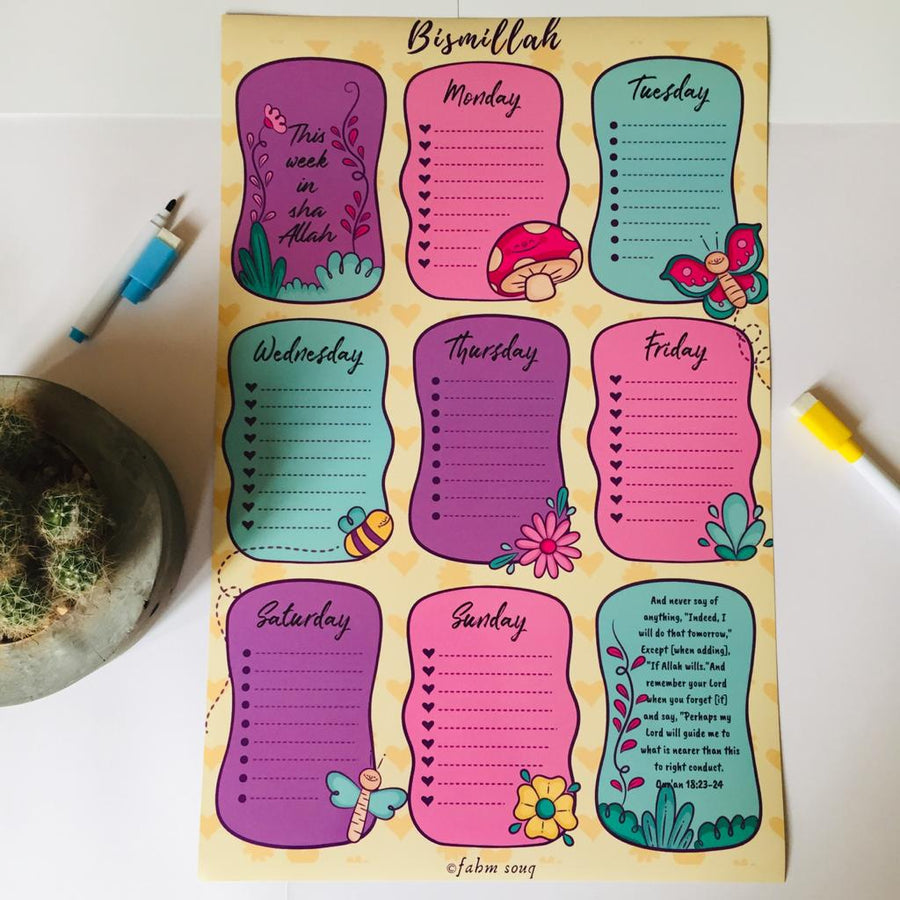 Bismillah
This
week
in
sha
Allah
Monday
Tuesday
Wednesday
Thursday
Friday
Saturday
Sunday
And never say of
anything, "Indeed, I
will do that tomorrow,"
Except [when adding],
"If Allah wills."And
remember your Lord
when you forget [it]
and say, "Perhaps my
Lord will guide me to
what is nearer than this
to right conduct.
Qur'an 18:23-24
©fahm souq